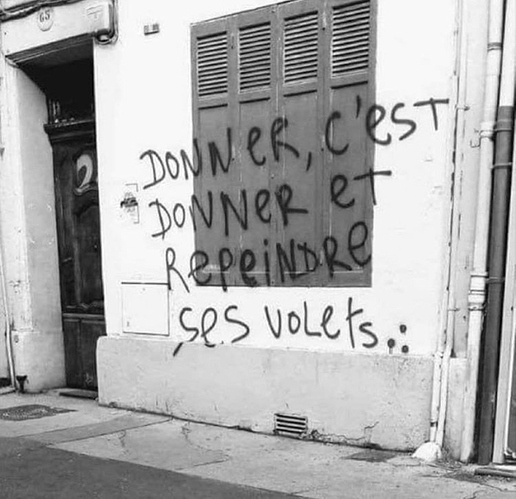 65
DONNER, C'EST
DONNER ET
REPEINDRE
SES VOLETS..: